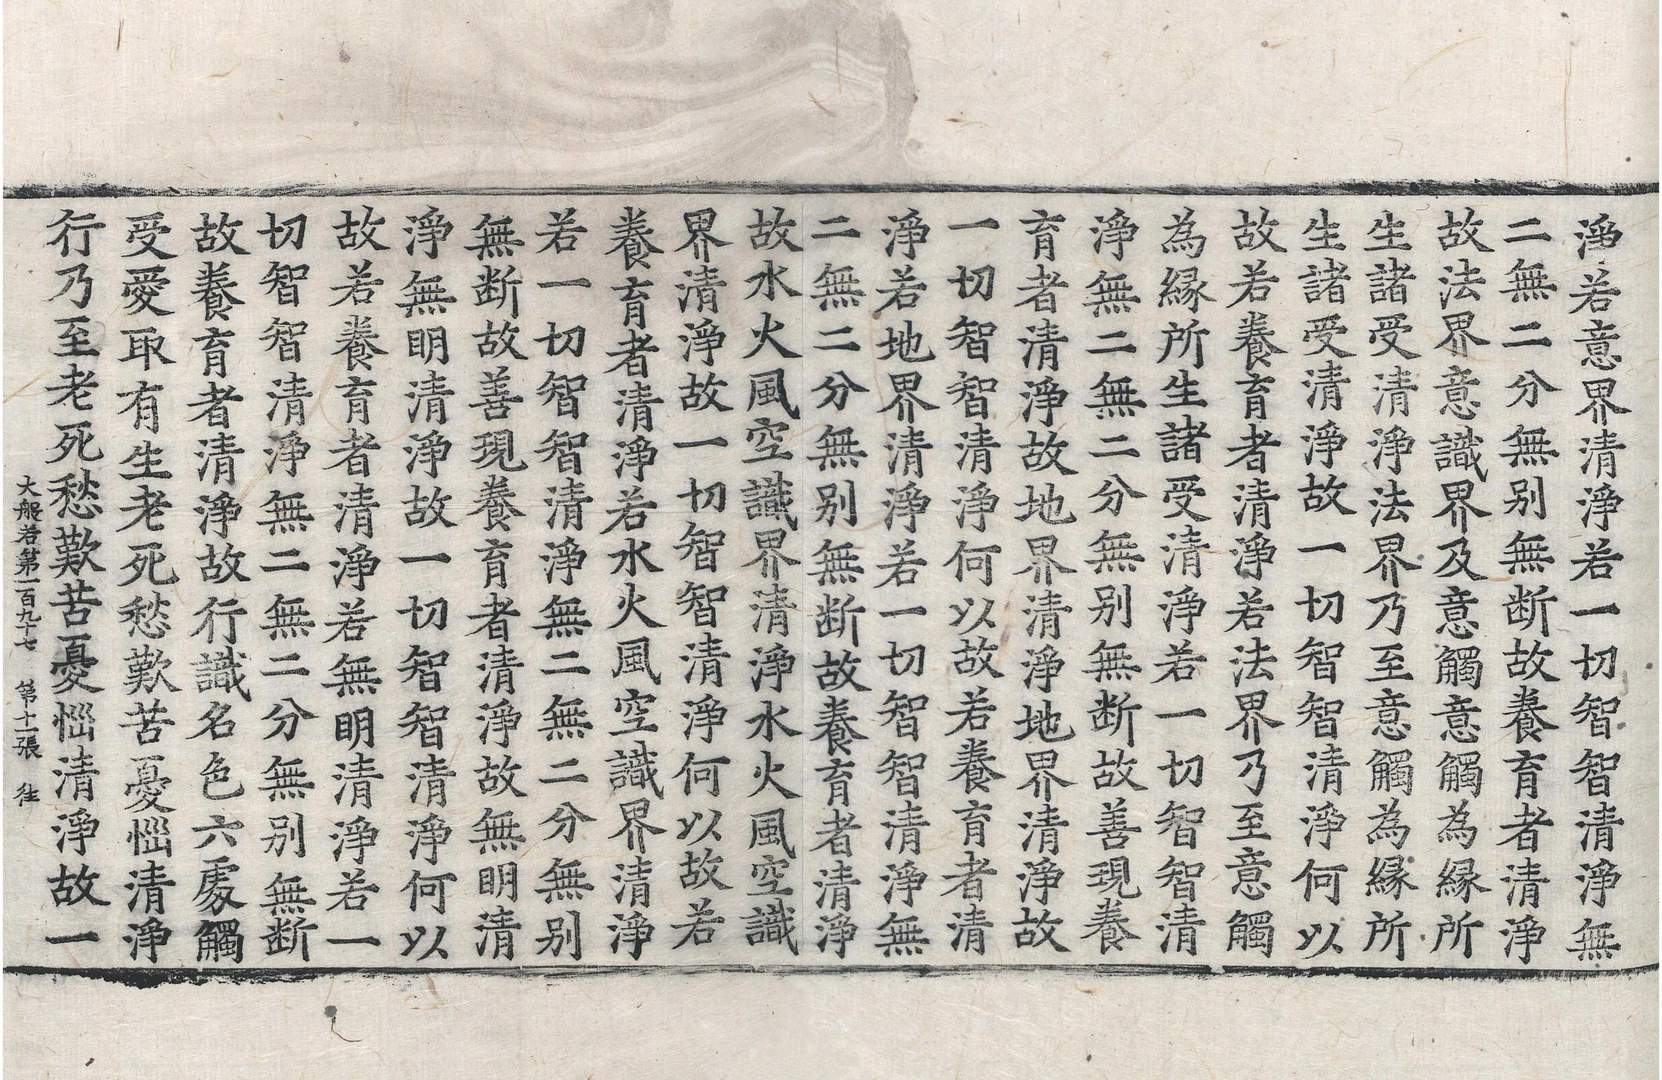 淨若意界清淨若一切智智清淨無
二無二分無别無断故養育者清淨
故法界意識界及意觸意觸為縁所
生諸受清淨法界乃至意觸為縁所
生諸受清淨故一切智智清淨何以
故若養育者清淨若法界乃至意觸
為縁所生諸受清淨若一切智智清
淨無二無二分無别無断故善現養
育者清淨故地界清淨地界清淨故
一切智智清淨何以故若養育者清
淨若地界清淨若一切智智清淨無
二無二分無别無断故養育者清淨
故水火風空識界清淨水火風空識
界清淨故一切智智清淨何以故若
養育者清淨若水火風空識界清淨
若一切智智清淨無二無二分無别
無断故善現養育者清淨故無眀清
淨無眀清淨故一切智智清淨何以
故若養育者清淨若無眀清淨若一
切智智清淨無二無二分無别無断
故養育者清淨故行識名色六處觸
受愛取有生老死愁歎苦憂惱清淨
行乃至老死愁歎苦憂惱清淨故一
大般若第一百九十七 第十一張 往